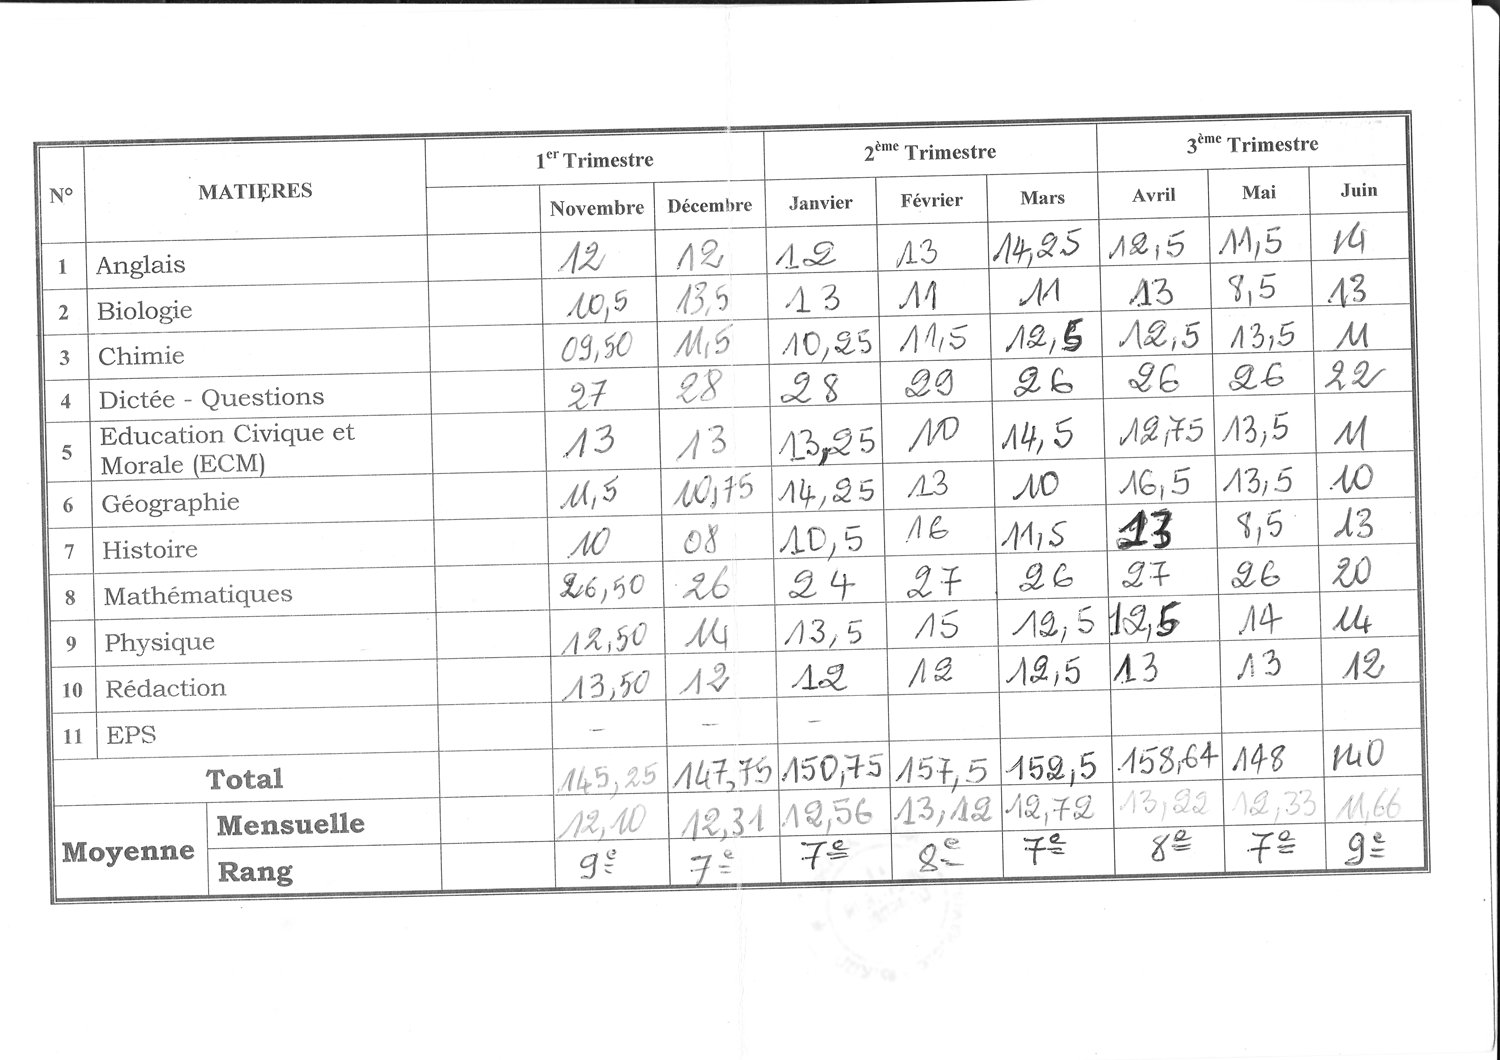 N° MATIERES 1er Trimestre 2ème Trimestre 3ème Trimestre
Novembre Décembre Janvier Février Mars Avril Mai Juin
1 Anglais 12 12 12 13 14,25 12,5 11,5 14
2 Biologie 10,5 13,5 13 11 11 13 8,5 13
3 Chimie 09,50 11,5 10,25 11,5 12,5 12,5 13,5 11
4 Dictée - Questions 27 28 28 29 26 26 26 22
5 Education Civique et
Morale (ECM) 13 13 13,25 10 14,5 12,75 13,5 11
6 Géographie 11,5 10,75 14,25 13 10 16,5 13,5 10
7 Histoire 10 08 10,5 16 11,5 13 8,5 13
8 Mathématiques 26,50 26 24 27 26 27 26 20
9 Physique 12,50 14 13,5 15 12,5 12,5 14 14
10 Rédaction 13,50 12 12 12 12,5 13 13 12
11 EPS – – –
Total 145,25 147,75 150,75 157,5 152,5 158,64 148 140
Moyenne Mensuelle 12,10 12,31 12,56 13,12 12,72 13,22 12,33 11,66
Rang 9e 7e 7e 8e 7e 8e 7e 9e